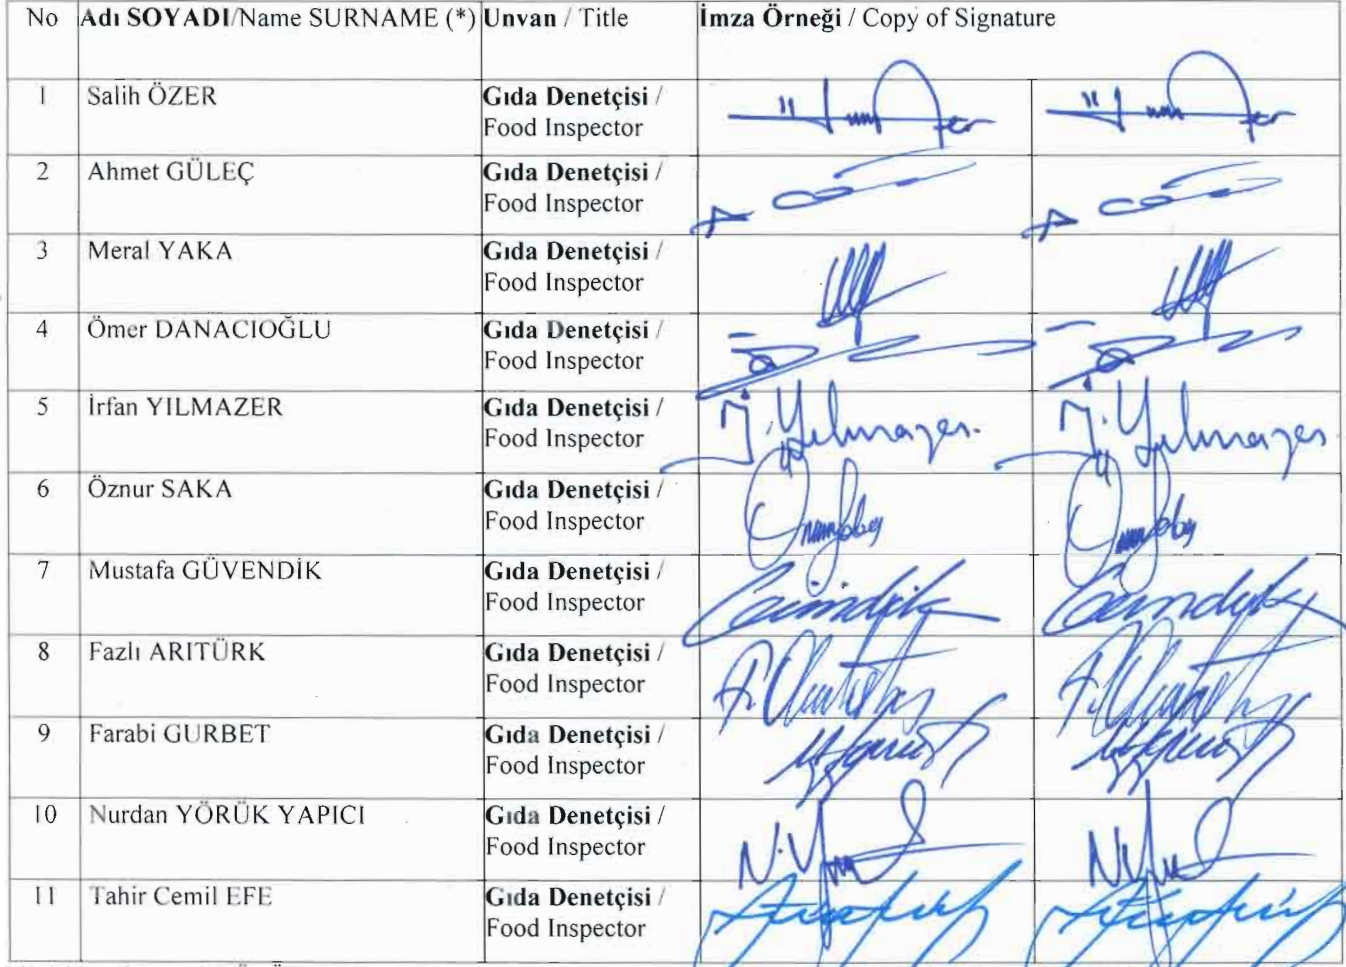 No Adı SOYADI/Name SURNAME (*) Unvan / Title İmza Örneği / Copy of Signature
1 Salih ÖZER Gıda Denetçisi /
Food Inspector
2 Ahmet GÜLEÇ Gıda Denetçisi /
Food Inspector
3 Meral YAKA Gıda Denetçisi /
Food Inspector
4 Ömer DANACIOĞLU Gıda Denetçisi /
Food Inspector
5 İrfan YILMAZER Gıda Denetçisi / İ. Yılmazer. İ. Yılmazer
Food Inspector
6 Öznur SAKA Gıda Denetçisi /
Food Inspector
7 Mustafa GÜVENDİK Gıda Denetçisi /
Food Inspector
8 Fazlı ARITÜRK Gıda Denetçisi /
Food Inspector
9 Farabi GURBET Gıda Denetçisi /
Food Inspector
10 Nurdan YÖRÜK YAPICI Gıda Denetçisi /
Food Inspector
11 Tahir Cemil EFE Gıda Denetçisi /
Food Inspector